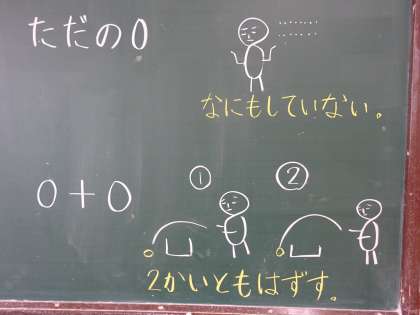 ただの0
なにもしていない。
0+0
① ②
2かいともはずす。